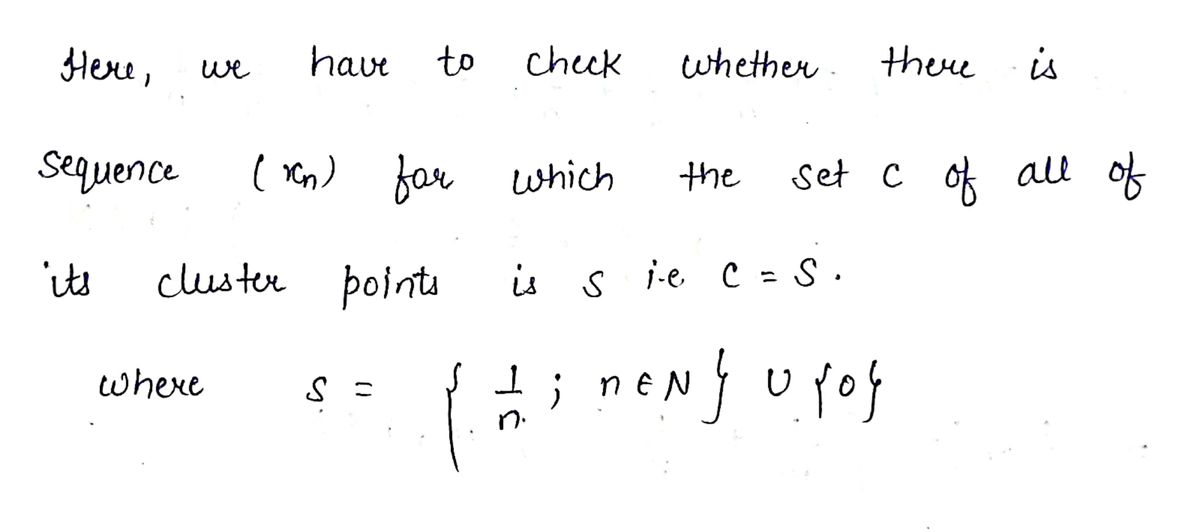 Here, we have to check whether there is
sequence (xn) for which the set C of all of
its cluster points is S i.e. C = S.
where S = { 1/n ; n ∈ N } ∪ {0}